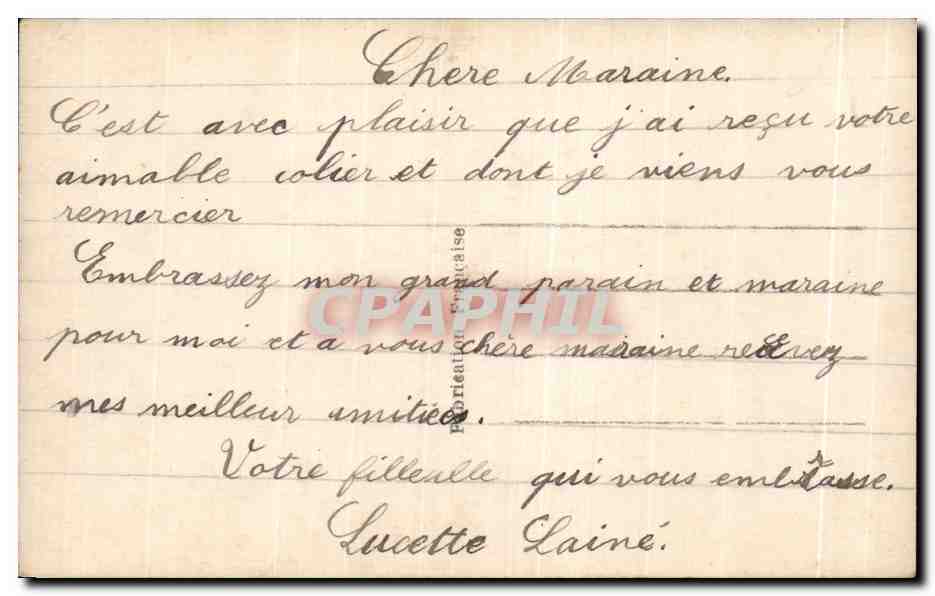 Chere Maraine.
C'est avec plaisir que j'ai reçu votre
aimable colier et dont je viens vous
remercier
Embrassez mon grand parain et maraine
pour moi et a vous chère maraine recevez
mes meilleur amitiées.
Votre filleulle qui vous embrasse.
Lucette Lainé.
Fabrication Française
CPAPHIL